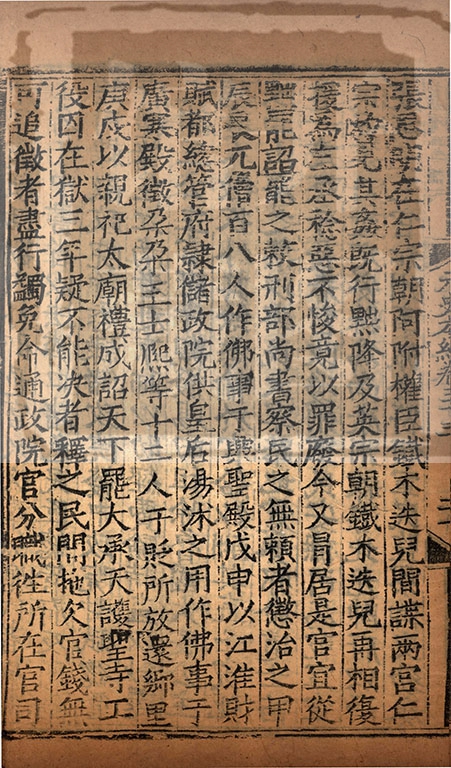 張思明在仁宗朝阿附權臣鐵木迭兒間諜兩宮仁
宗灼見其姦既行黜降及英宗朝鐵木迭兒再相復
援為左丞稔惡不悛竟以罪廢今又冐居是官宜從
詔罷之敕刑部尚書察民之無賴者懲治之甲
辰元僧百八人作佛事于興聖殿戊申以江淮財
賦都總管府隷儲政院供皇后湯沐之用作佛事于
廣寒殿徵朶朶王士熈等十二人于貶所放還鄉里
庚戍以親祀太廟禮成詔天下罷大承天護聖寺工
役囚在獄三年疑不能决者釋之民間拖欠官錢無
可追徵者盡行蠲免命通政院官分職徃所在官司